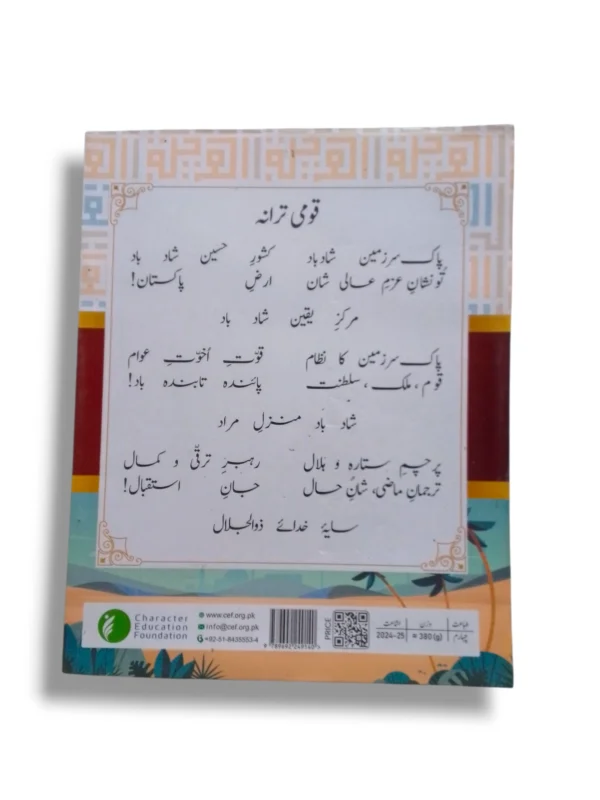 العربية العربية العربية
قومی ترانہ
پاک سرزمین شاد باد کشورِ حسین شاد باد
تُو نشانِ عزمِ عالی شان ارضِ پاکستان!
مرکزِ یقین شاد باد
پاک سرزمین کا نظام قوّتِ اُخوّتِ عوام
قوم، ملک، سلطنت پائندہ تابندہ باد!
شاد باد منزلِ مراد
پرچمِ ستارہ و ہلال رہبرِ ترقّی و کمال
ترجمانِ ماضی، شانِ حال جانِ استقبال!
سایۂ خدائے ذوالجلال
Character
Education
Foundation
www.cef.org.pk
info@cef.org.pk
+92-51-8435553-4
PRICE
اشاعت وزن طباعت
2024-25 = 380 (g) چہارم